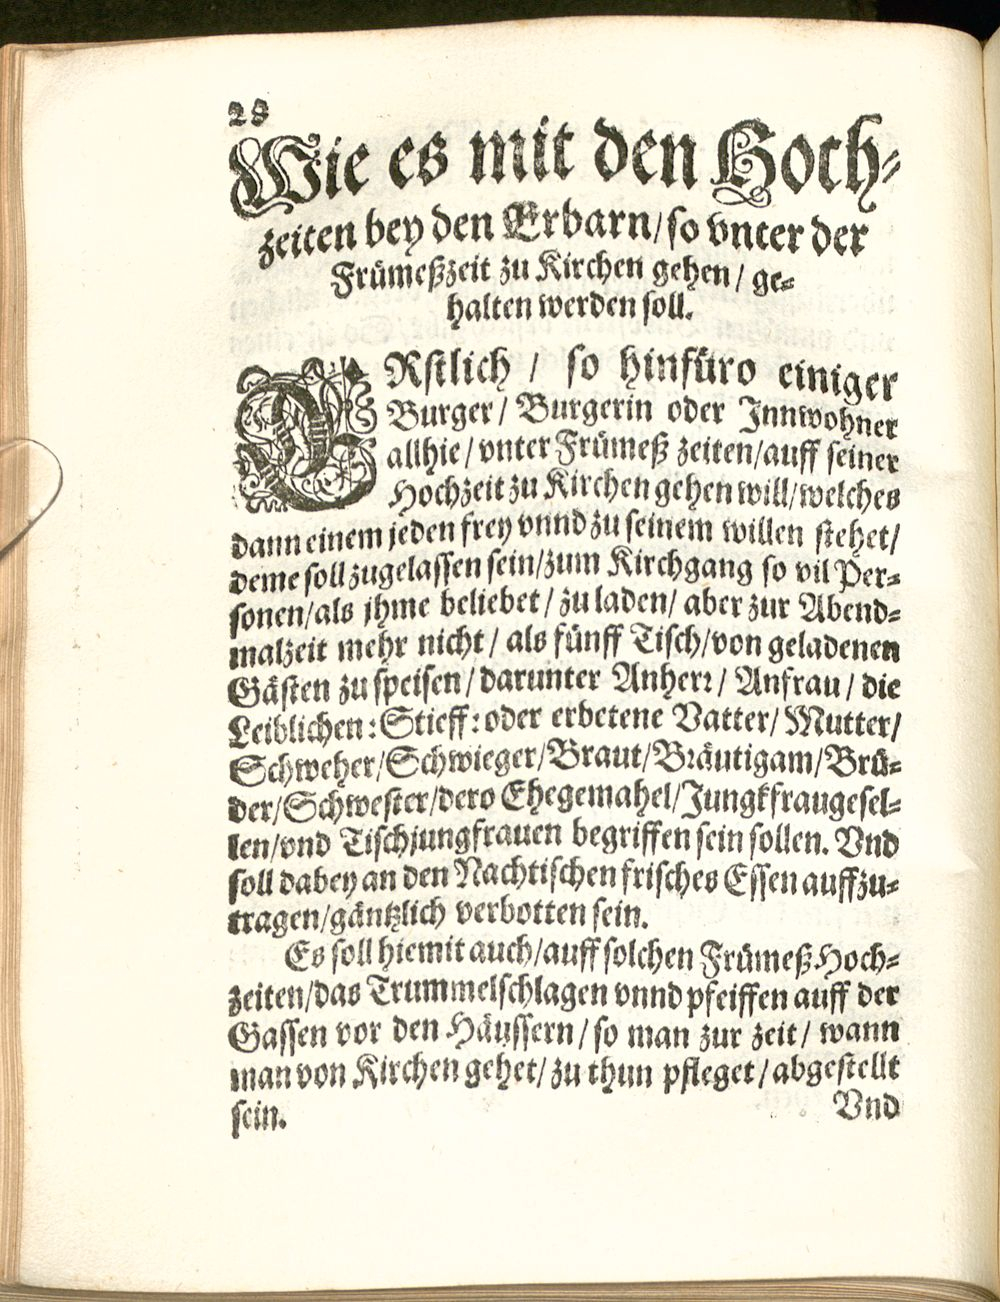 28
Wie es mit den Hoch⸗
zeiten bey den Erbarn/ so vnter der
Frümeßzeit zu Kirchen gehen / ge⸗
halten werden soll.
ERstlich / so hinfüro einiger
Burger / Burgerin oder Innwohner
allhie / vnter Frümeß zeiten/ auff seiner
Hochzeit zu Kirchen gehen will/ welches
dann einem jeden frey vnnd zu seinem willen stehet/
deme soll zugelassen sein/ zum Kirchgang so vil Per⸗
sonen/ als jhme beliebet / zu laden/ aber zur Abend⸗
malzeit mehr nicht / als fünff Tisch/ von geladenen
Gästen zu speisen / darunter Anherr / Anfrau / die
Leiblichen: Stieff: oder erbetene Vatter/ Mutter/
Schweher/ Schwieger/ Braut/ Bräutigam/ Brü⸗
der/ Schwester/ dero Ehegemahel/ Jungkfraugesel⸗
len/ vnd Tischjungfrauen begriffen sein sollen. Vnd
soll dabey an den Nachtischen frisches Essen auffzu⸗
tragen/ gäntzlich verbotten sein.
Es soll hiemit auch/ auff solchen Frümeß Hoch⸗
zeiten/ das Trummelschlagen vnnd pfeiffen auff der
Gassen vor den Häussern / so man zur zeit / wann
man von Kirchen gehet/ zu thun pfleget / abgestellt
sein. Vnd